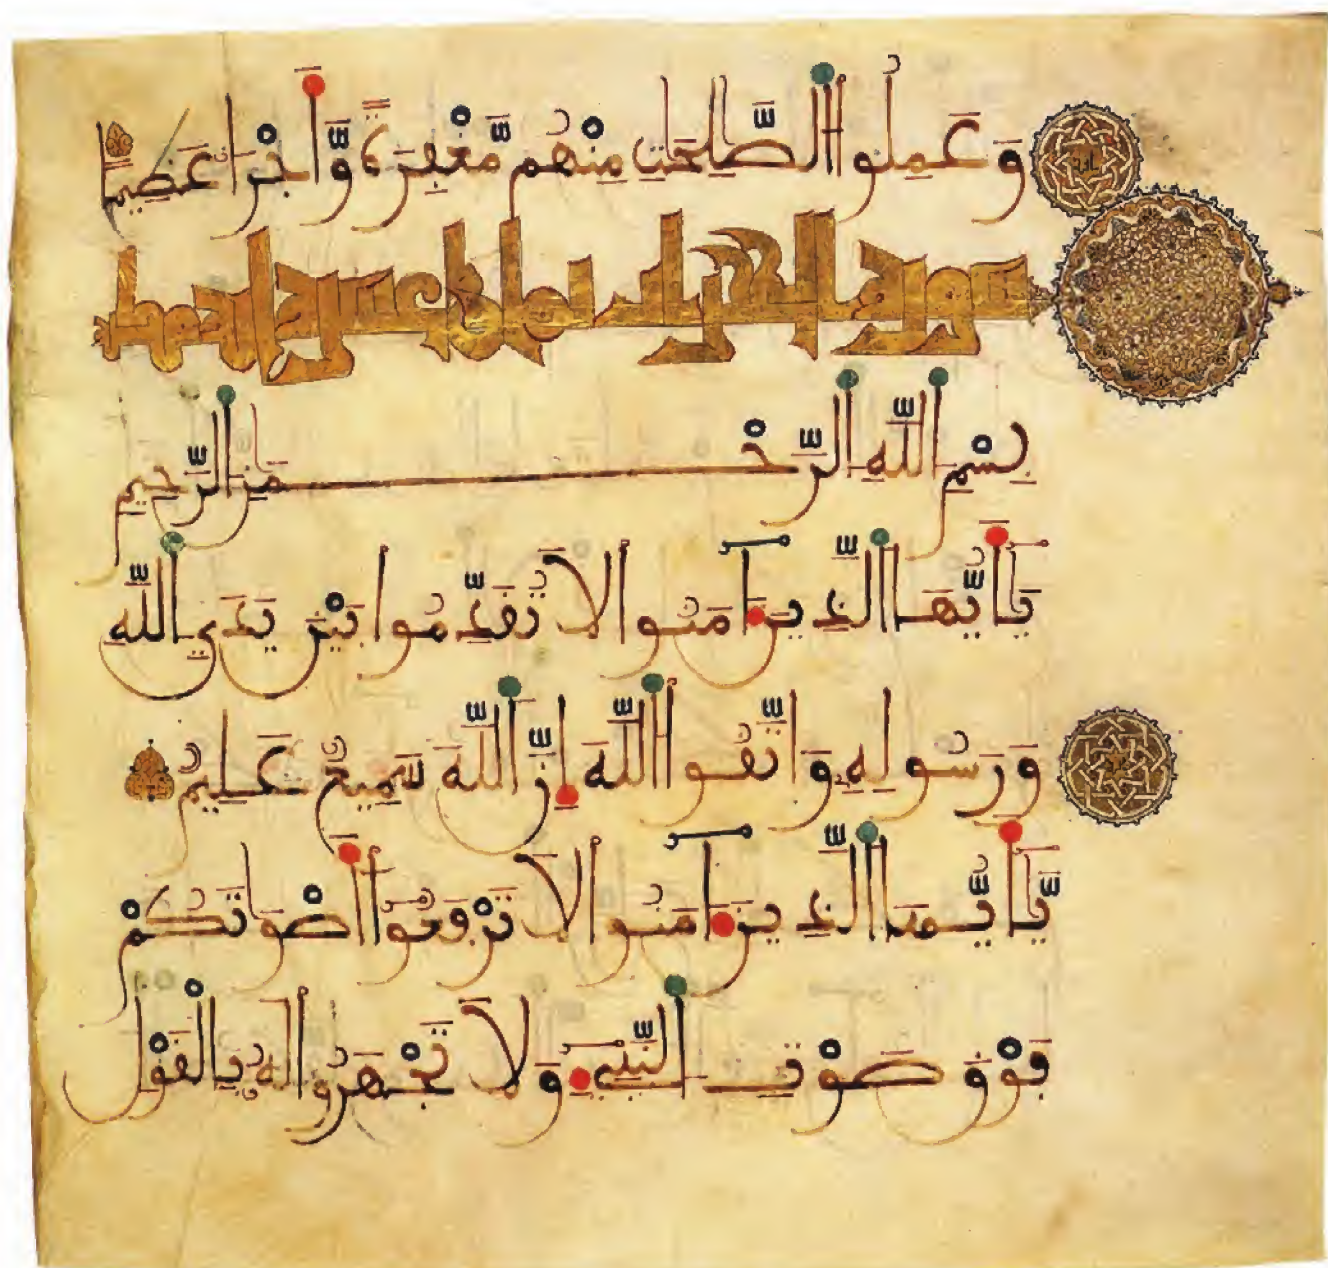 وَعَمِلُوا الصَّلِحَتِ مِنْهُم مَّغْفِرَةً وَّأَجْرًا عَظِيمًا
سورة الحجرات
بِسْمِ اللَّهِ الرَّحْمَنِ الرَّحِيمِ
يَأَيُّهَا الَّذِينَ ءَامَنُوا لَا تُقَدِّمُوا بَيْنَ يَدَيِ اللَّهِ
وَرَسُولِهِ وَاتَّقُوا اللَّهَ إِنَّ اللَّهَ سَمِيعٌ عَلِيمٌ
يَّأَيُّهَا الَّذِينَ ءَامَنُوا لَا تَرْفَعُوا أَصْوَاتَكُمْ
فَوْقَ صَوْتِ النَّبِيءِ وَلَا تَجْهَرُوا لَهُ بِالْقَوْلِ